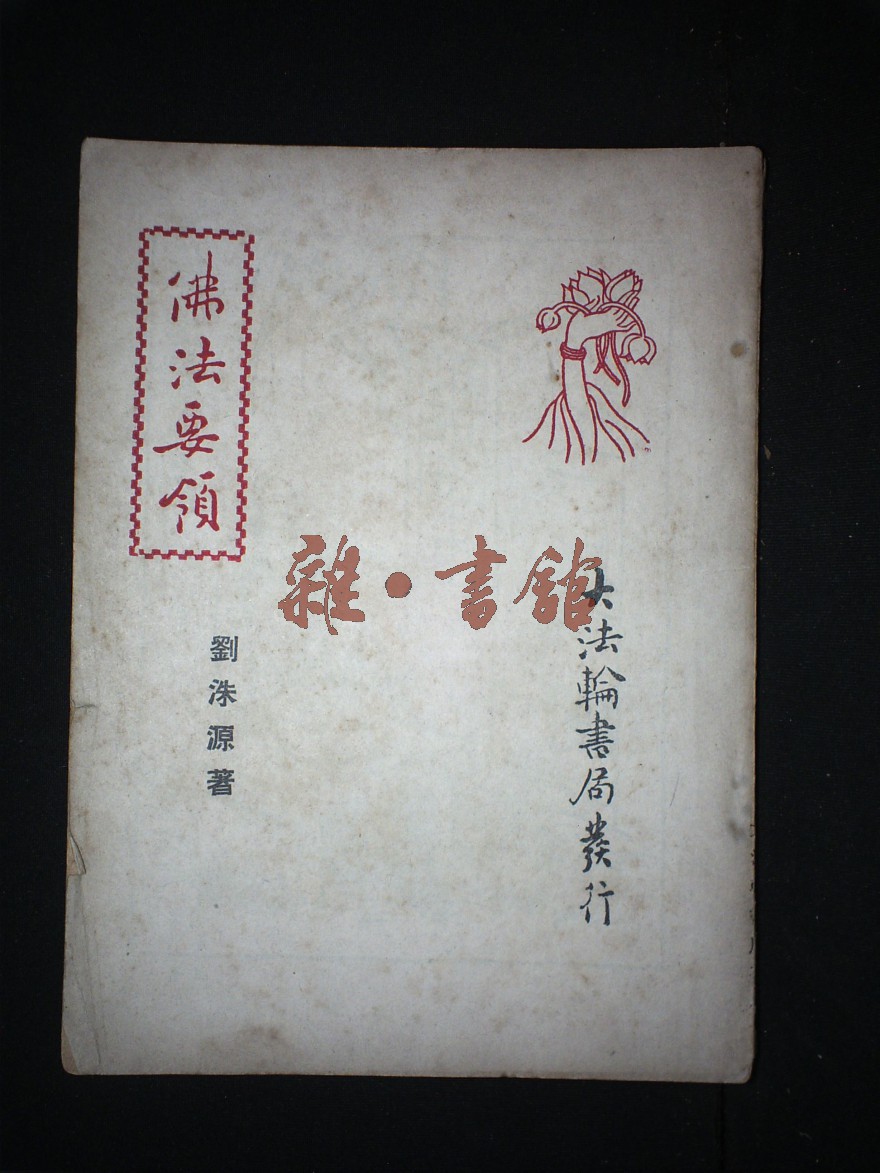 佛法要領
劉洙源著
雜·書館
大法輪書局發行